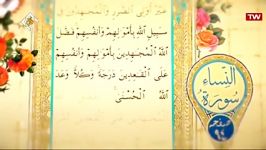 غَيْرُ أُولِي الضَّرَرِ وَالْمُجَاهِدُونَ فِي
سَبِيلِ اللَّهِ بِأَمْوَالِهِمْ وَأَنْفُسِهِمْ فَضَّلَ
اللَّهُ الْمُجَاهِدِينَ بِأَمْوَالِهِمْ وَأَنْفُسِهِمْ
عَلَى الْقَاعِدِينَ دَرَجَةً وَكُلًّا وَعَدَ
اللَّهُ الْحُسْنَى
سُورَةُ
النساء
صفحه
۹۴